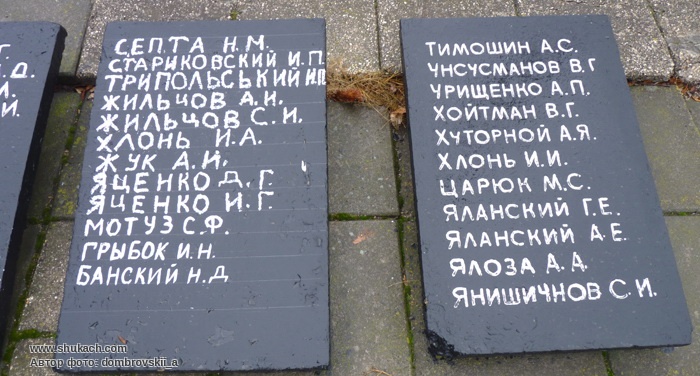 Г.
Н.Д.
Л.
И.
СЕПТА Н.М.
СТАРИКОВСКИЙ И.П.
ТРИПОЛЬСЬКИЙ И.П
ЖИЛЬЦОВ А.И.
ЖИЛЬЦОВ С.И.
ХЛОНЬ И.А.
ЖУК А.И.
ЯЦЕНКО Д.Г.
ЯЦЕНКО И.Г.
МОТУЗ С.Ф.
ГРЫБОК И.Н.
БАНСКИЙ Н.Д
ТИМОШИН А.С.
УНСУСМАНОВ В.Г
УРИЩЕНКО А.П.
ХОЙТМАН В.Г.
ХУТОРНОЙ А.Я.
ХЛОНЬ И.И.
ЦАРЮК М.С.
ЯЛАНСКИЙ Г.Е.
ЯЛАНСКИЙ А.Е.
ЯЛОЗА А.А.
ЯНИШИЧНОВ С.И.
www.shukach.com
Автор фото: dombrovskii_a